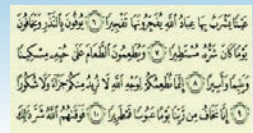 عَيْنًا يَشْرَبُ بِهَا عِبَادُ اللَّهِ يُفَجِّرُونَهَا تَفْجِيرًا ٦ يُوفُونَ بِالنَّذْرِ وَيَخَافُونَ
يَوْمًا كَانَ شَرُّهُ مُسْتَطِيرًا ٧ وَيُطْعِمُونَ الطَّعَامَ عَلَى حُبِّهِ مِسْكِينًا
وَيَتِيمًا وَأَسِيرًا ٨ إِنَّمَا نُطْعِمُكُمْ لِوَجْهِ اللَّهِ لَا نُرِيدُ مِنْكُمْ جَزَاءً وَلَا شُكُورًا
٩ إِنَّا نَخَافُ مِنْ رَبِّنَا يَوْمًا عَبُوسًا قَمْطَرِيرًا ١٠ فَوَقَاهُمُ اللَّهُ شَرَّ ذَلِكَ